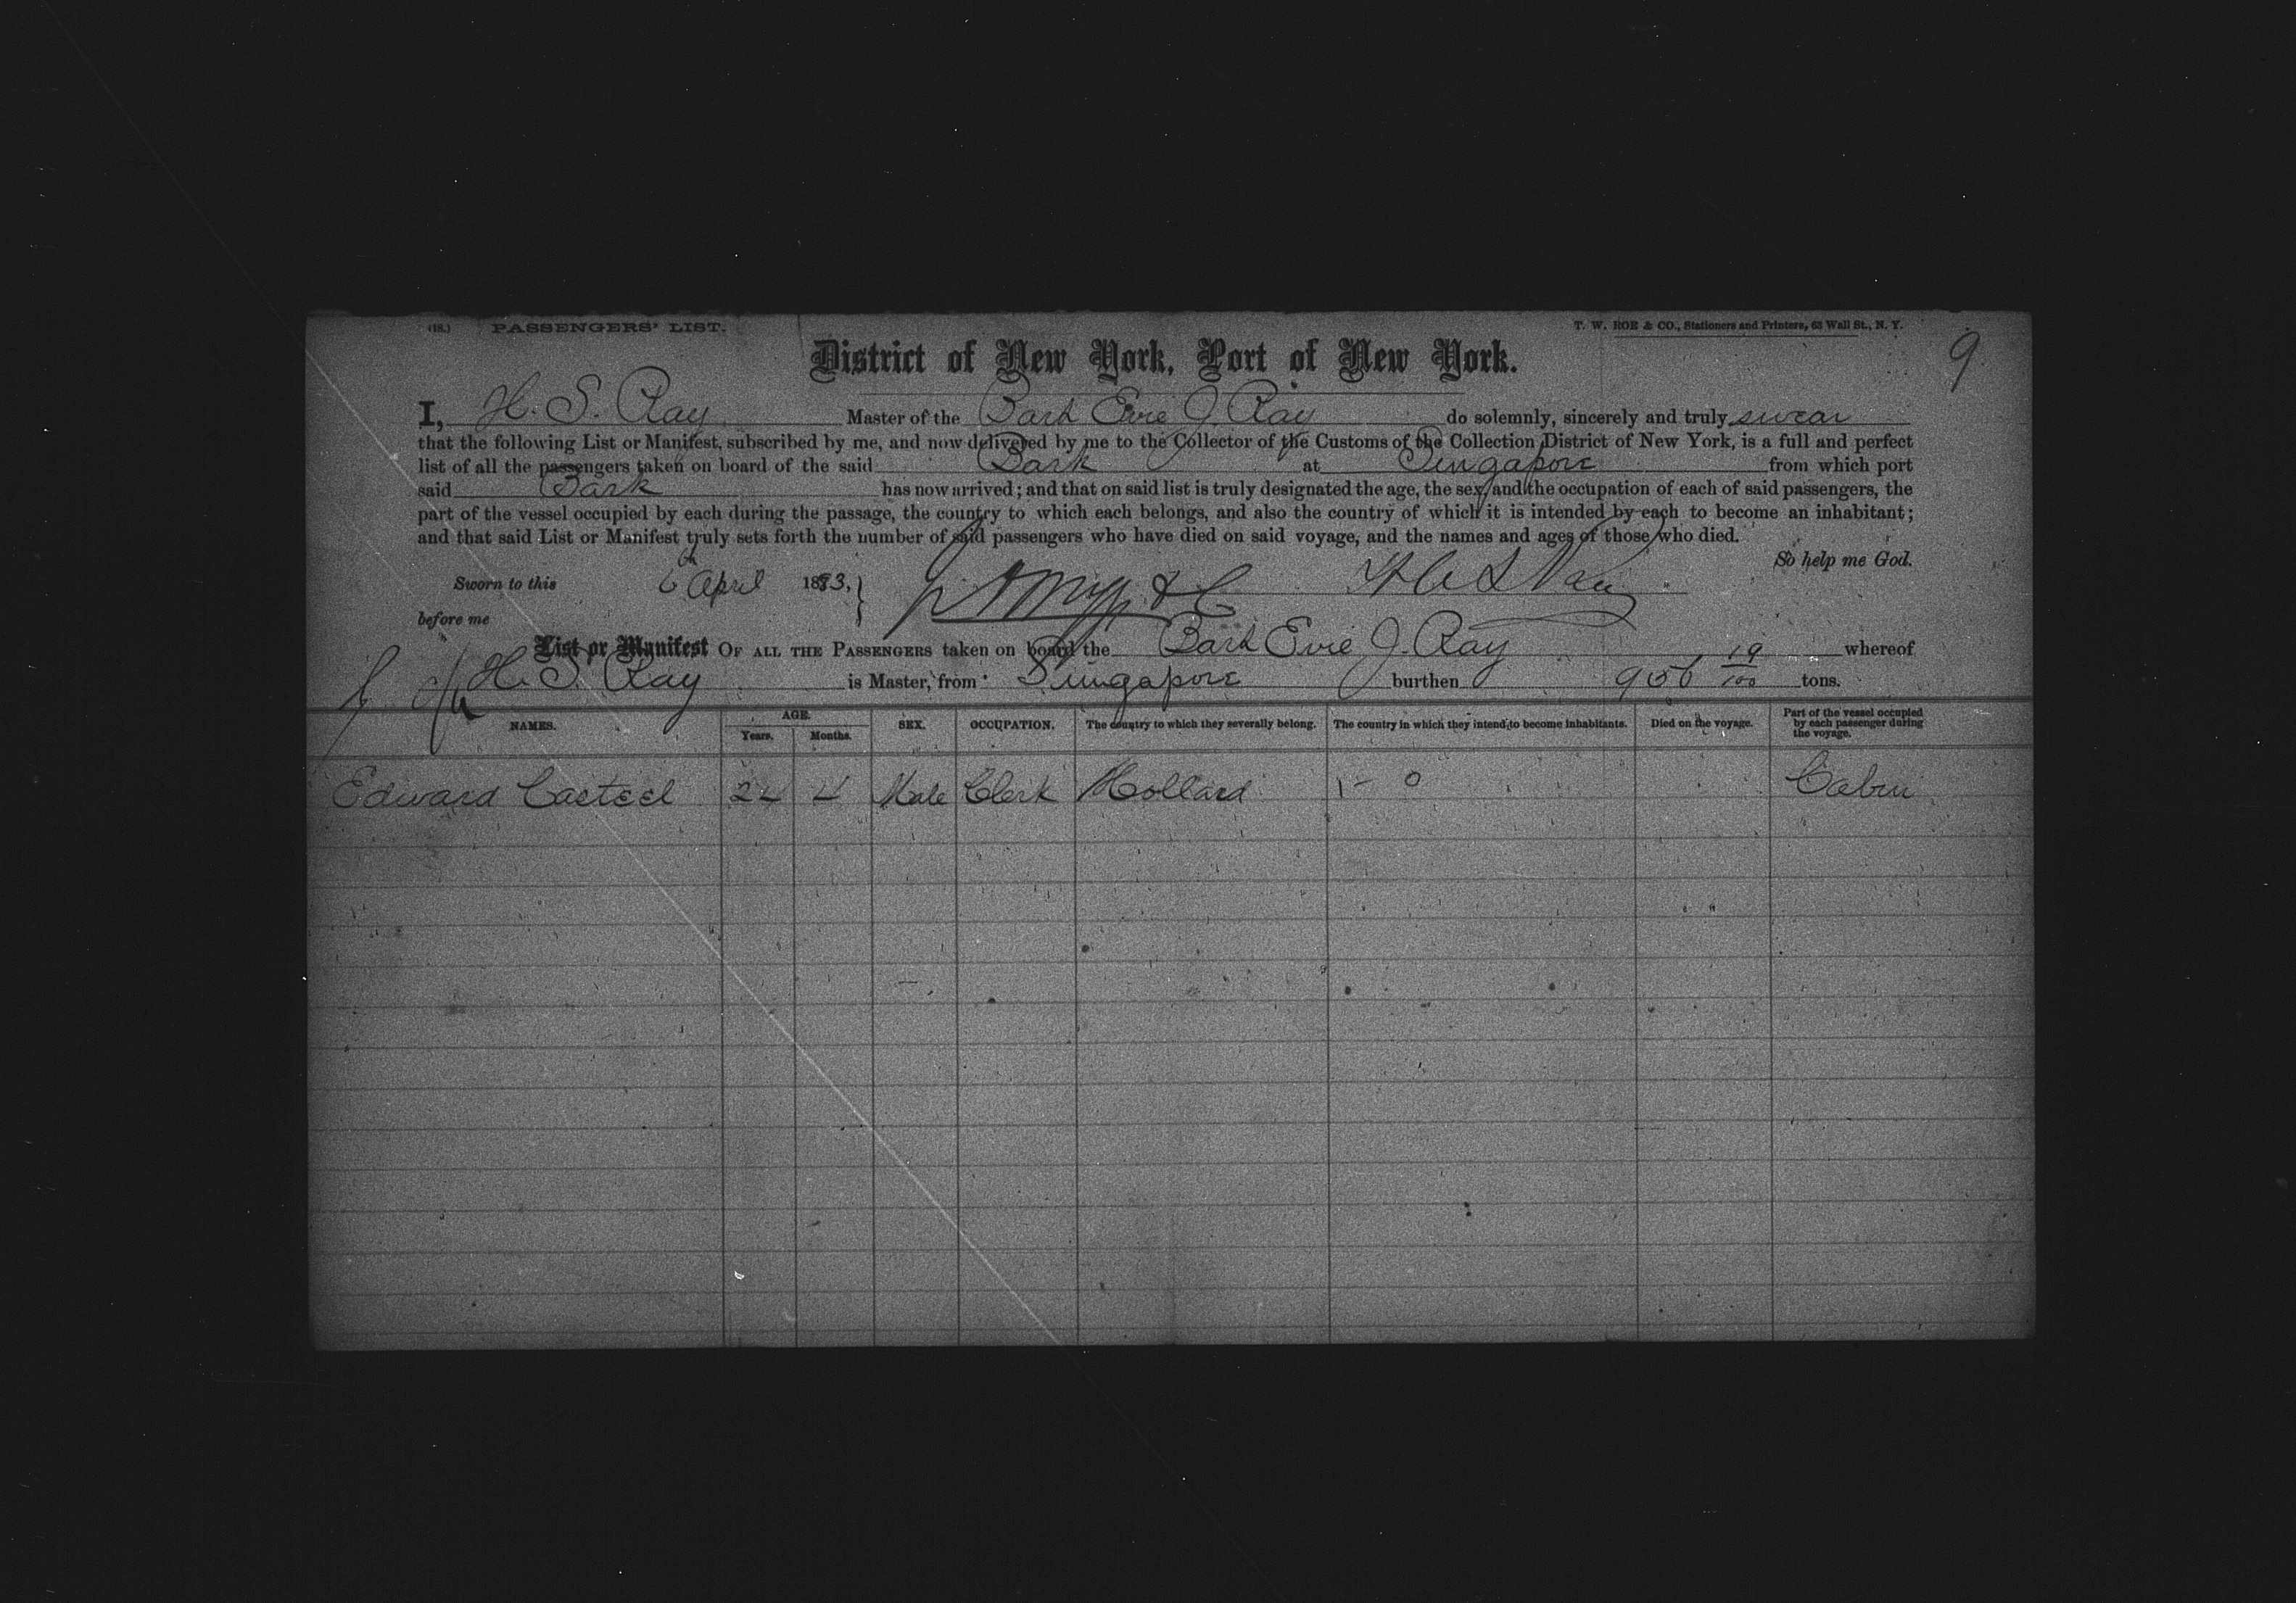 (18.) PASSENGERS' LIST. T. W. ROE & CO., Stationers and Printers, 63 Wall St., N. Y.
9
District of New York, Port of New York.
I, H. S. Ray Master of the Bark Evie J. Ray do solemnly, sincerely and truly swear
that the following List or Manifest, subscribed by me, and now delivered by me to the Collector of the Customs of the Collection District of New York, is a full and perfect
list of all the passengers taken on board of the said Bark at Singapore from which port
said Bark has now arrived; and that on said list is truly designated the age, the sex, and the occupation of each of said passengers, the
part of the vessel occupied by each during the passage, the country to which each belongs, and also the country of which it is intended by each to become an inhabitant;
and that said List or Manifest truly sets forth the number of said passengers who have died on said voyage, and the names and ages of those who died.
So help me God.
Sworn to this 6th April 1883,
before me
List or Manifest OF ALL THE PASSENGERS taken on board the Bark Evie J. Ray whereof
H. S. Ray is Master, from Singapore burthen 956 19/100 tons.
NAMES. AGE. Years. Months. SEX. OCCUPATION. The country to which they severally belong. The country in which they intend to become inhabitants. Died on the voyage. Part of the vessel occupied by each passenger during the voyage.
Edward Casteel 24 4 Male Clerk Holland Cabin